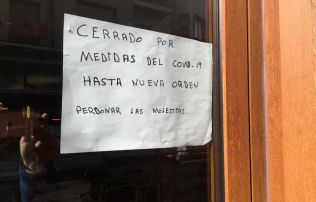 CERRADO POR
MEDIDAS DEL COVID-19
HASTA NUEVA ORDEN
PERDONAR LAS MOLESTIAS...